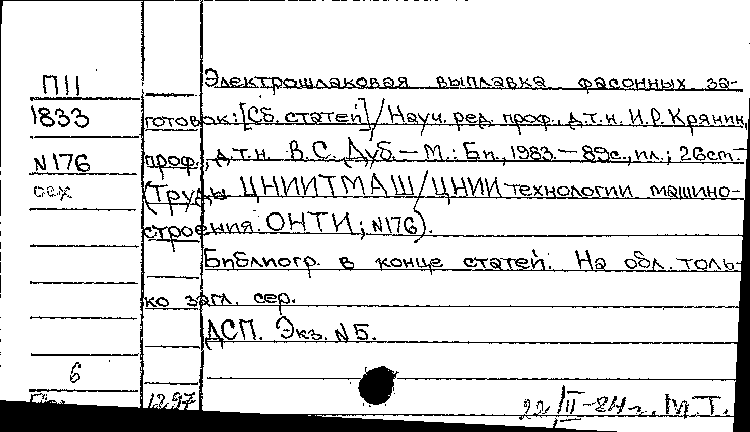 П11
1833
N176
Электрошлаковая выплавка фасонных за-
готовок: [Сб. статей] / Науч. ред. проф., д.т.н. И.Р. Крянин,
проф., д.т.н. В.С. Дуб. — М.: Бп, 1983. — 89с., пл.; 26см. —
(Труды ЦНИИТМАШ / ЦНИИ технологии машино-
строения. ОНТИ; N176).
Библиогр. в конце статей. На обл. толь-
ко загл. сер.
ДСП. Экз. N5.
6
1297
22/II-84г. М.Т.